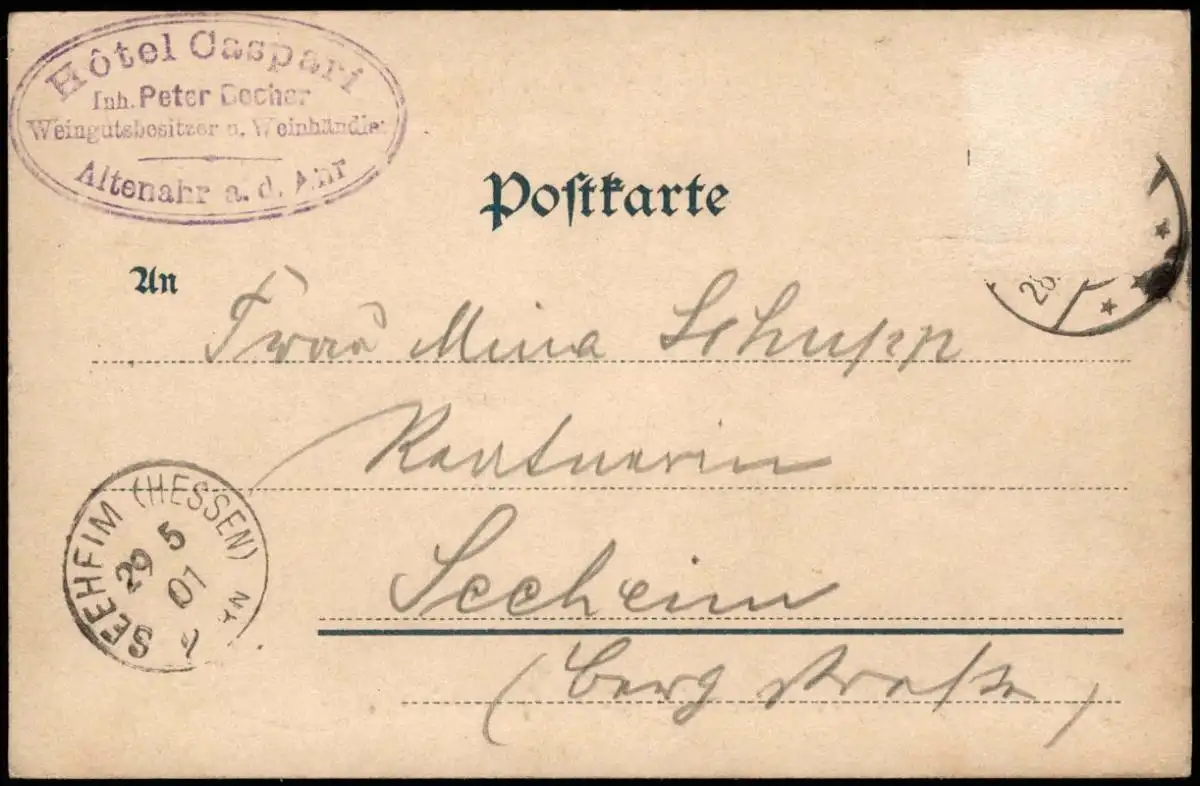 Hôtel Caspari
Inh. Peter Becher
Weingutsbesitzer u. Weinhändler
Altenahr a. d. Ahr
Postkarte
An
Frau Mina Schupp
Rentnerin
Seeheim
(Bergstraße)
SEEHEIM (HESSEN)
29 5
01